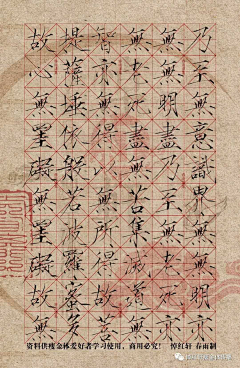 乃至無意識界無無明亦
無無明盡乃至無老死亦
無老死盡無苦集滅道無
智亦無得以無所得故菩
提薩埵依般若波羅蜜多
故心無罣礙無罣礙故無
资料供瘦金体爱好者学习使用，商用必究！ 悼红轩 春雨制